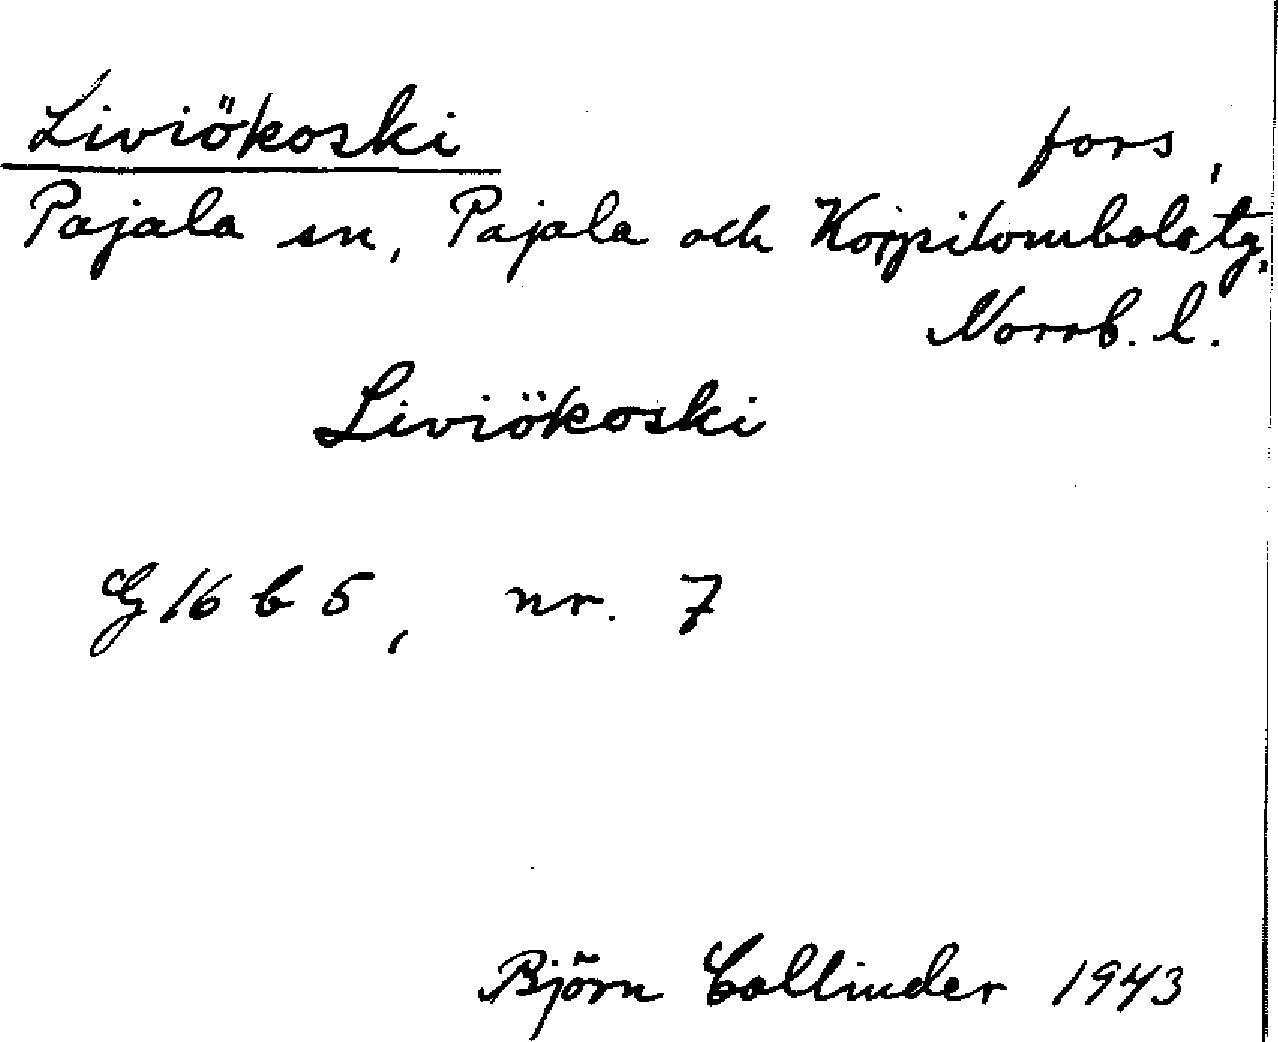 Liviökoski fors,
Pajala sn, Pajala och Korpilombolo tg,
Norrb. l.
Liviökoski
G 16 b 5, nr. 7
Björn Collinder 1943